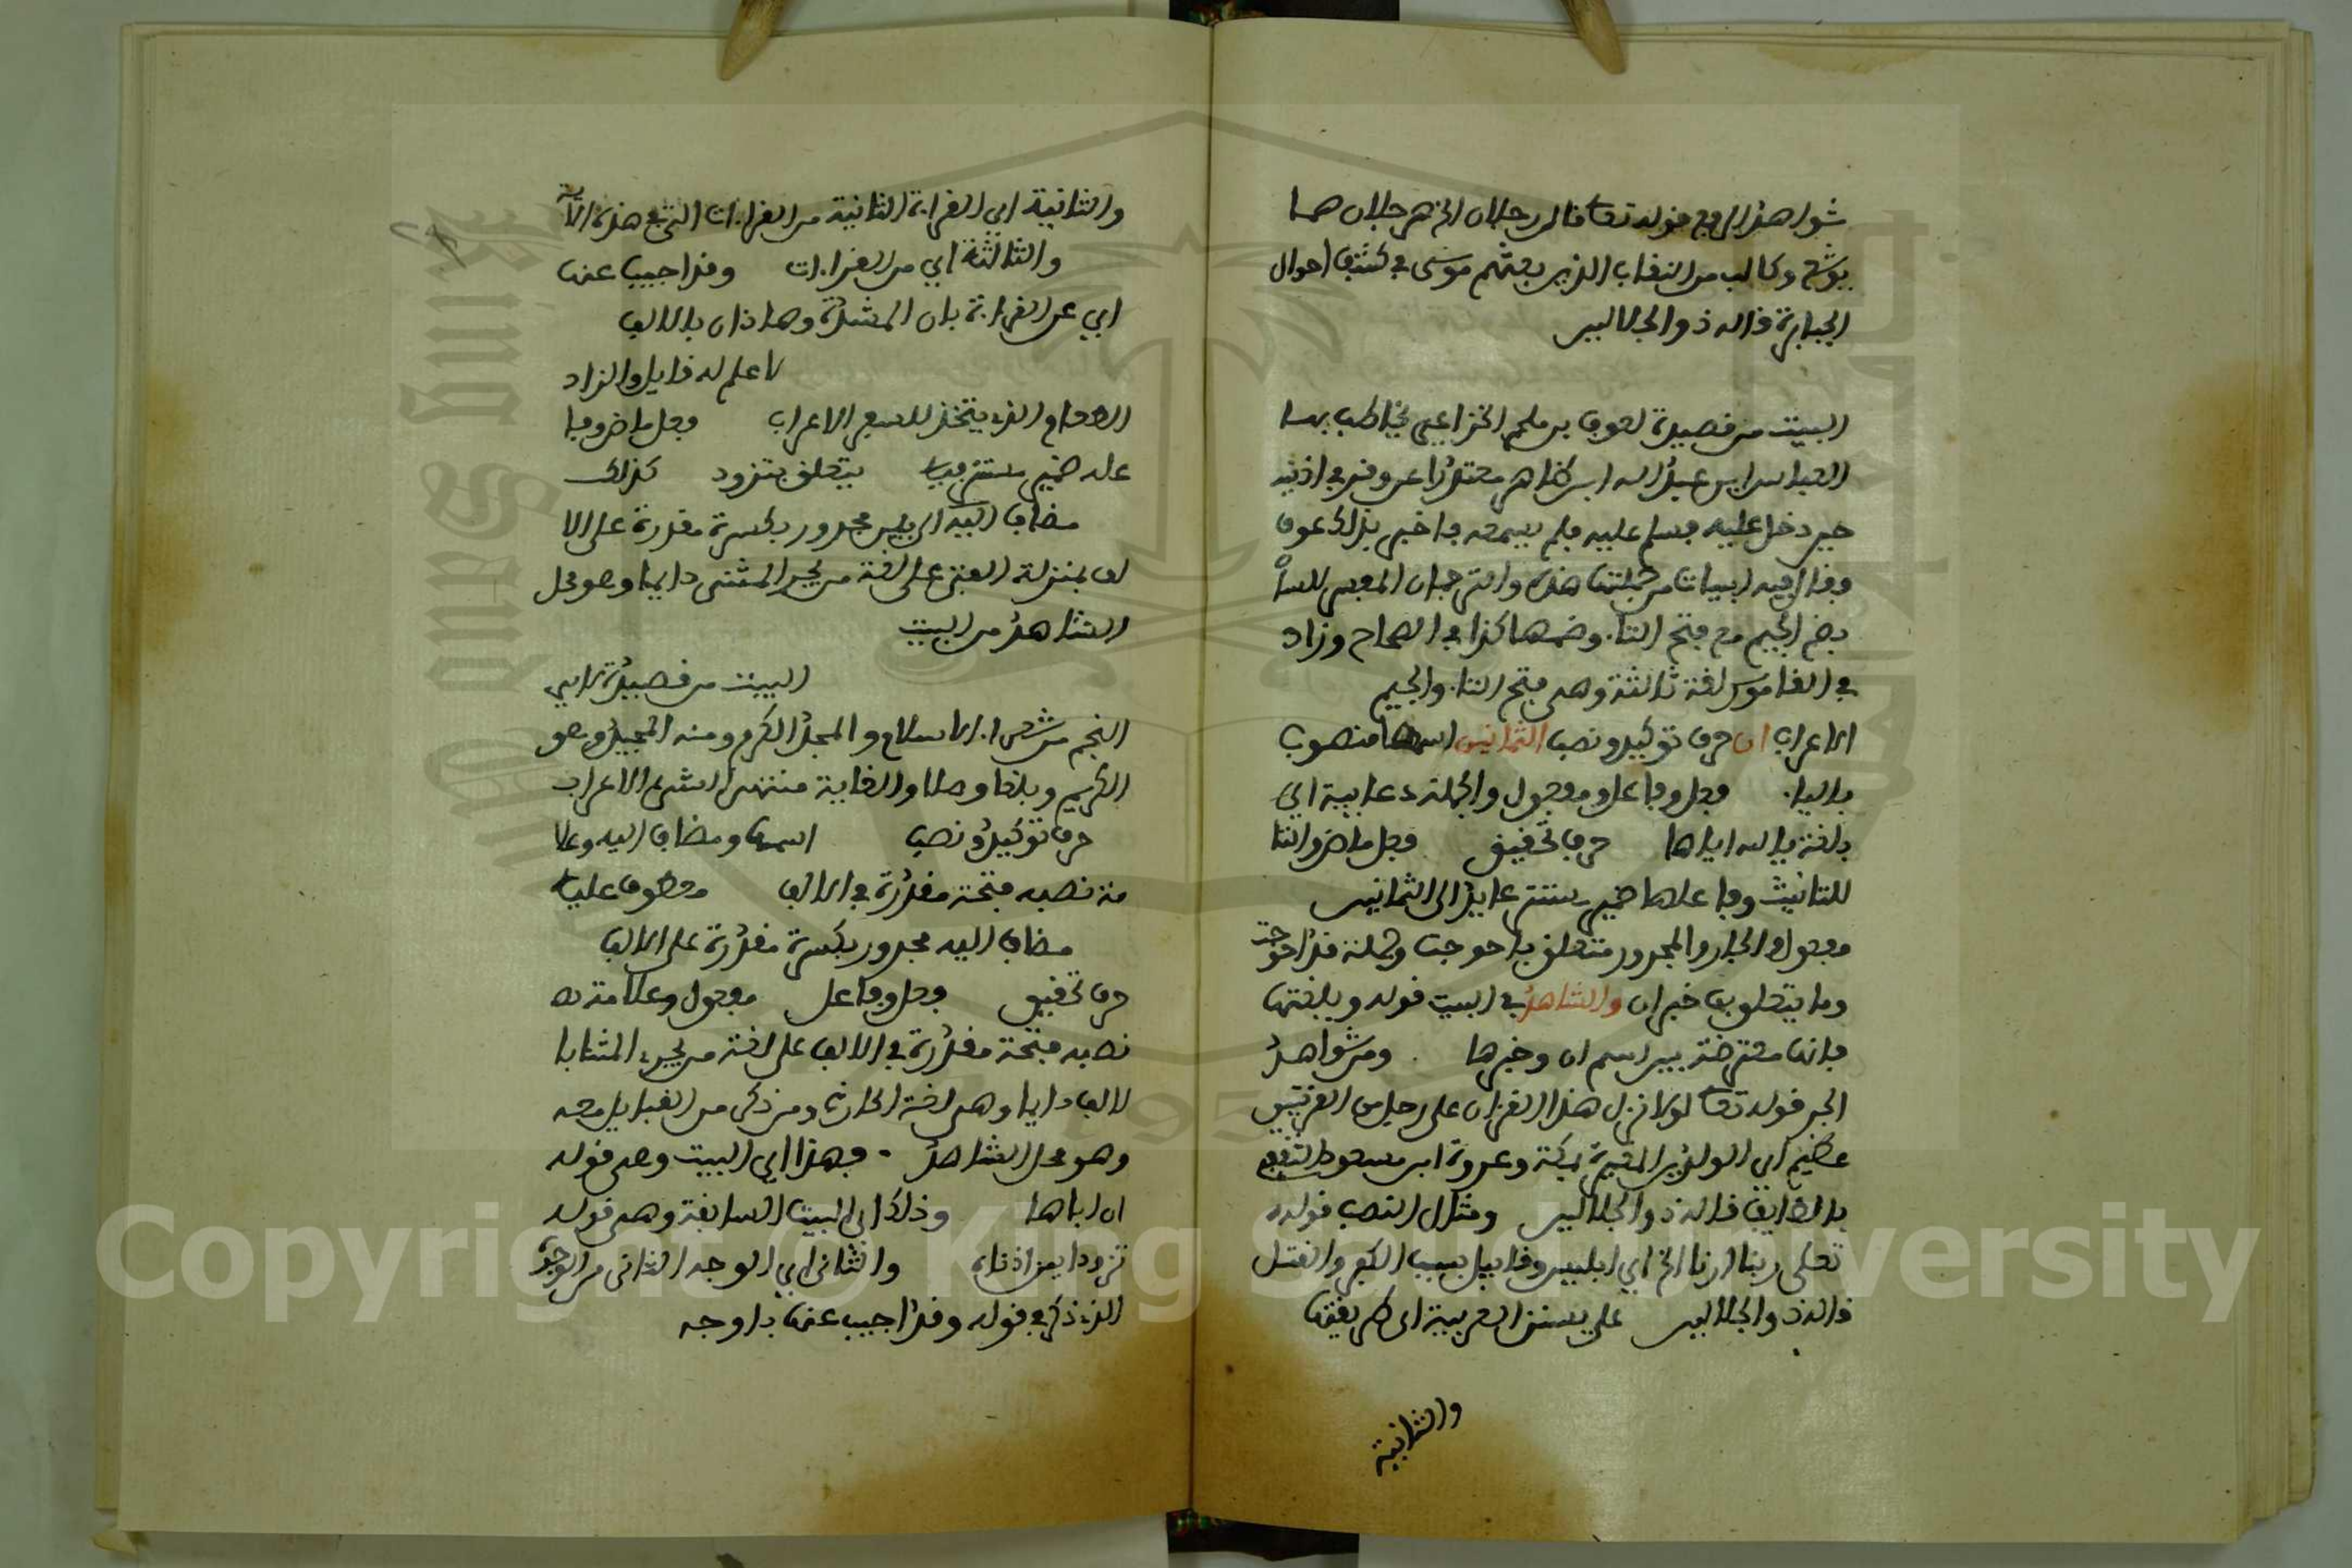 شواهد الرفع قوله تعا قال رجلان الخ هر جلان هما
يوشع وكالب من النقباء الذين بعثهم موسى في كشف احوال
الجبابرة قاله ذو الجلالين
البيت من قصيدة لعوف بن ملحم الخزاعي يخاطب بها
العباس ابن عبد الله ابن طاهر معتذرا عن وقر في اذنيه
حين دخل عليه فسلم عليه فلم يسمعه فاخبر بذلك عوف
وقال فيه ابيات من جملتها هذه والترجمان المعبر للسا
بضم الجيم مع فتح التاء وضمها كذا في الصحاح وزاد
في القاموس لغة ثالثة وهي فتح التاء والجيم
الاعراب ان حرف توكيد ونصب الثمانين اسمها منصوب
بالياء فعل وفاعل ومفعول والجملة دعايية اي
بلغة يالله اياها حرف تحقيق فعل ماض والتا
للتانيث وفاعلها ضمير يستتر عايد الى الثمانين
مفعول والجار والمجرور متعلق باحوجت وجملة قد احوجت
وما يتعلق بها خبر ان والشاهد في البيت قوله وبلغتها
فانها معترضة بين اسم ان وخبرها ومن شواهد
الجر قوله تعا لولا نزل هذا القرءان على رجل من القريتين
عظيم اي الوليد بن المغيرة بمكة وعروة ابن مسعود الثقفي
بالطايف قاله ذو الجلالين ومثال النصب قوله
تعلى ربنا ارنا الخ اي ابليس وقابيل بسبب الكفر والقتل
قاله ذو الجلالين على سنن العربية اي طريقتها
والثانية
والثانية اي القراءة الثانية من القراءات التي في هذه الاية
والثالثة اي من القراءات وقد اجيب عنها
اي عن القراءة بان المشددة وهاذان بالالف
لا علم له قايل والزاد
الطعام الذي يتخذ للسفر الاعراب فعل ماض وفا
عله ضمير مستتر فيه يتعلق بتزود كذلك
مضاف اليه الى بين مجرور بكسرة مقدرة على الا
لف بمنزلة الفتى على لغة من يجر المثنى دايما وهو محل
الشاهد من البيت
البيت من قصيدة لابي
النجم من شعراء الاسلام والمجد الكرم ومنه المجيد وهو
الكريم وبلغا وصلا والغاية منتهى الشيء الاعراب
حرف توكيد ونصب اسمها ومضاف اليه وعلا
مة نصبه فتحة مقدرة في الالف معطوف عليه
مضاف اليه مجرور بكسرة مقدرة على الالف
حرف تحقيق فعل وفاعل مفعول وعلامة نصبه
نصبه فتحة مقدرة في الالف على لغة من يجر المثنى با
لالف دايما وهي لغة الحارث ومن ذكر من القبايل معه
وهو محل الشاهد فهذا اي البيت وهي قوله
ان اباها وذلك اي البيت السابقة وهي قوله
تزود بين اذناه والثاني اي الوجه الثاني من الوجه
الذي ذكر في قوله وقد اجيب عنها باوجه
Copyright © King Saud University